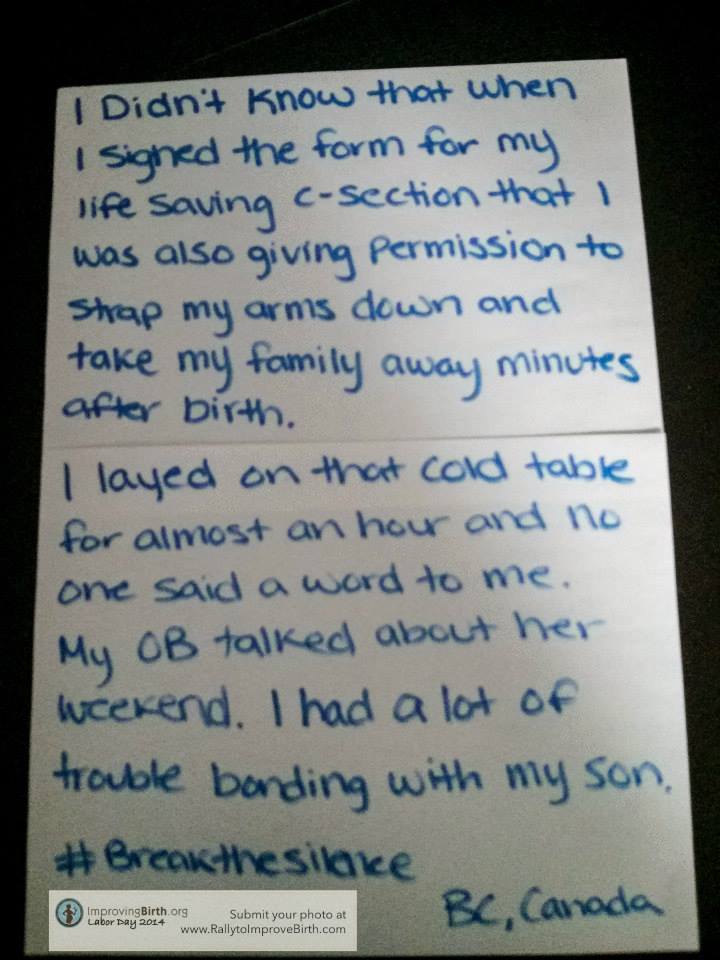 I Didn't know that when
I signed the form for my
life saving c-section that I
was also giving permission to
strap my arms down and
take my family away minutes
after birth.
I layed on that cold table
for almost an hour and no
one said a word to me.
My OB talked about her
weekend. I had a lot of
trouble bonding with my son.
#Breakthesilence
BC, Canada
ImprovingBirth.org
Labor Day 2014
Submit your photo at
www.RallytoImproveBirth.com